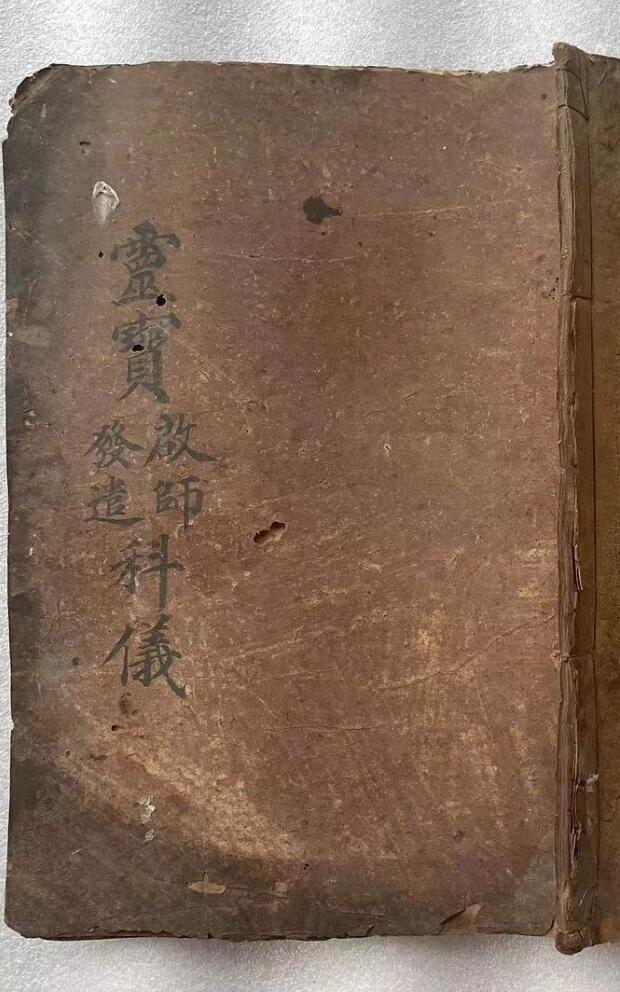 靈寶
啟師
發遣
科儀